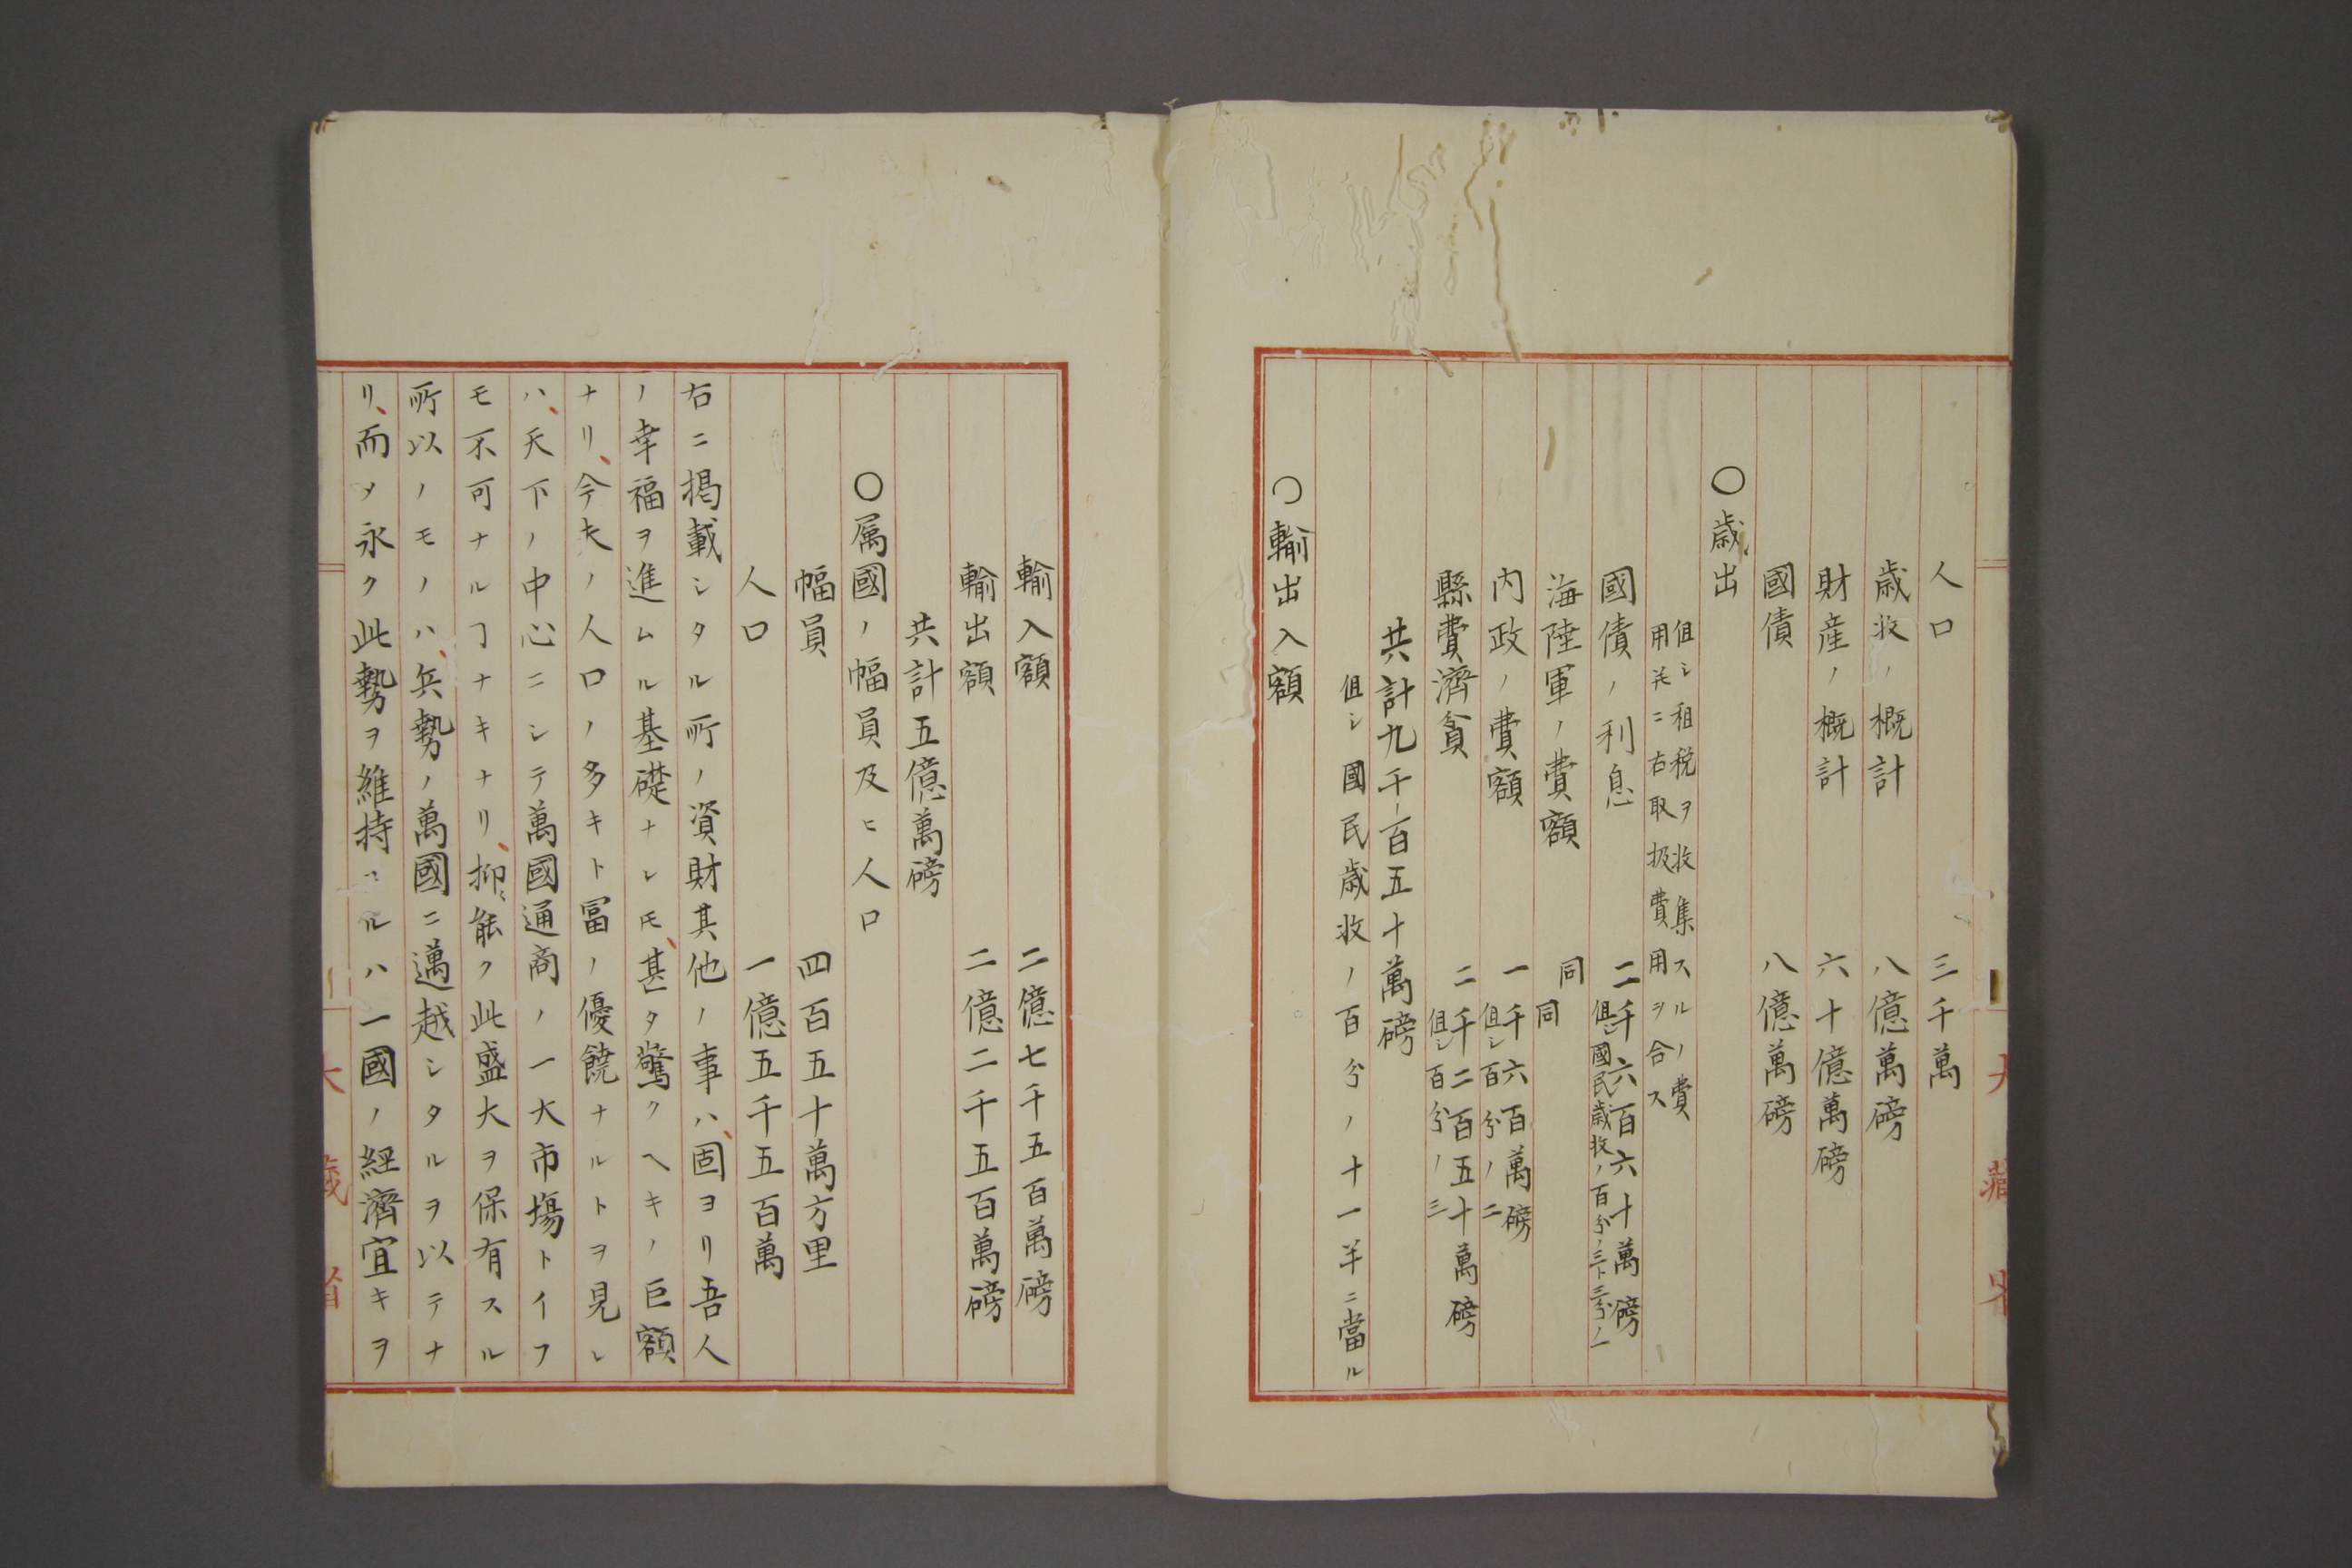 人口 三千萬
歳收ノ概計 八億萬磅
財産ノ概計 六十億萬磅
國債 八億萬磅
○歳出
但シ租税ヲ收集スルノ費
用并ニ右取扱費用ヲ合ス
國債ノ利息 二千六百六十萬磅
但シ國民歳收ノ百分ノ三ト三分ノ一
海陸軍ノ費額 同
同
内政ノ費額 一千六百萬磅
但シ百分ノ二
縣費濟貪 二千二百五十萬磅
但シ百分ノ三
共計九千百五十萬磅
但シ國民歳收ノ百分ノ十一半ニ當ル
○輸出入額
輸入額 二億七千五百萬磅
輸出額 二億二千五百萬磅
共計五億萬磅
○属國ノ幅員及ヒ人口
幅員 四百五十萬方里
人口 一億五千五百萬
右ニ掲載シタル所ノ資財其他ノ事ハ、固ヨリ吾人
ノ幸福ヲ進ムル基礎ナレ𪜈、甚タ驚クヘキノ巨額
ナリ、今夫ノ人口ノ多キト冨ノ優饒ナルトヲ見レ
ハ、天下ノ中心ニシテ萬國通商ノ一大市塲トイフ
モ不可ナルヿナキナリ、抑、能ク此盛大ヲ保有スル
所以ノモノハ、兵勢ノ萬國ニ邁越シタルヲ以テナ
リ、而メ永ク此勢ヲ維持スルハ一國ノ経濟宜キヲ
大藏省
大藏省